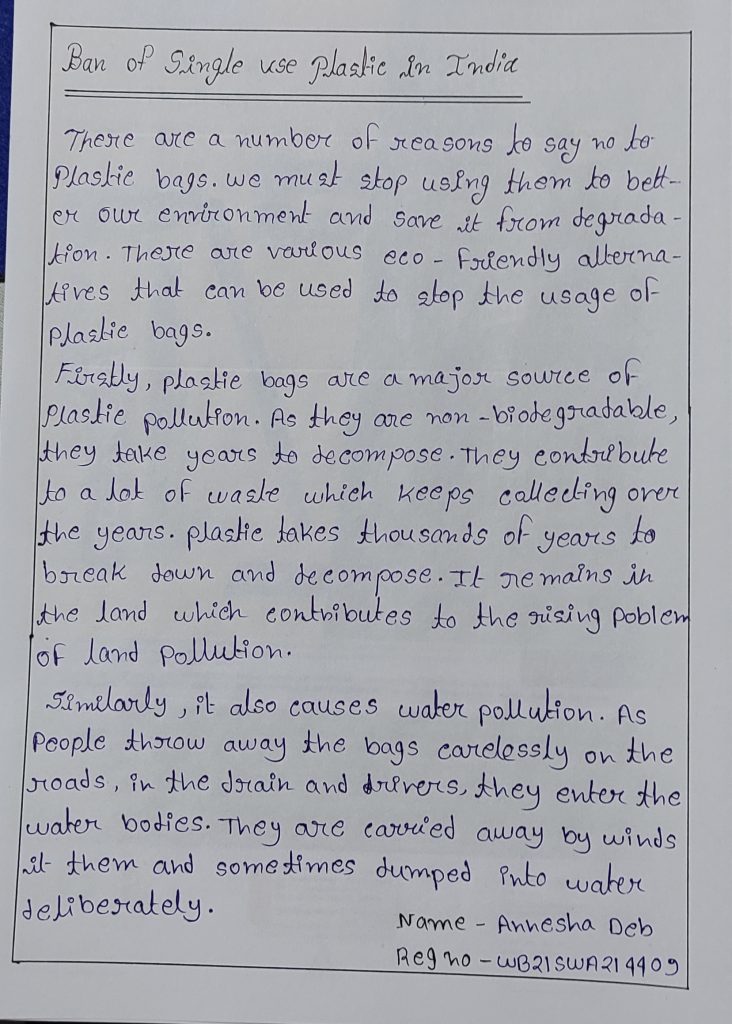 Ban of Single use Plastic in India
There are a number of reasons to say no to
Plastic bags. we must stop using them to bett-
er our environment and save it from degrada-
tion. There are various eco-friendly alterna-
tives that can be used to stop the usage of
plastic bags.
Firstly, plastic bags are a major source of
Plastic pollution. As they are non-biodegradable,
they take years to decompose. They contribute
to a lot of waste which keeps collecting over
the years. plastic takes thousands of years to
break down and decompose. It remains in
the land which contributes to the rising poblem
of land pollution.
Similarly, it also causes water pollution. As
People throw away the bags carelessly on the
roads, in the drain and rivers, they enter the
water bodies. They are carried away by winds
it them and sometimes dumped into water
deliberately.
Name - Annesha Deb
Reg no - WB21SWA214409